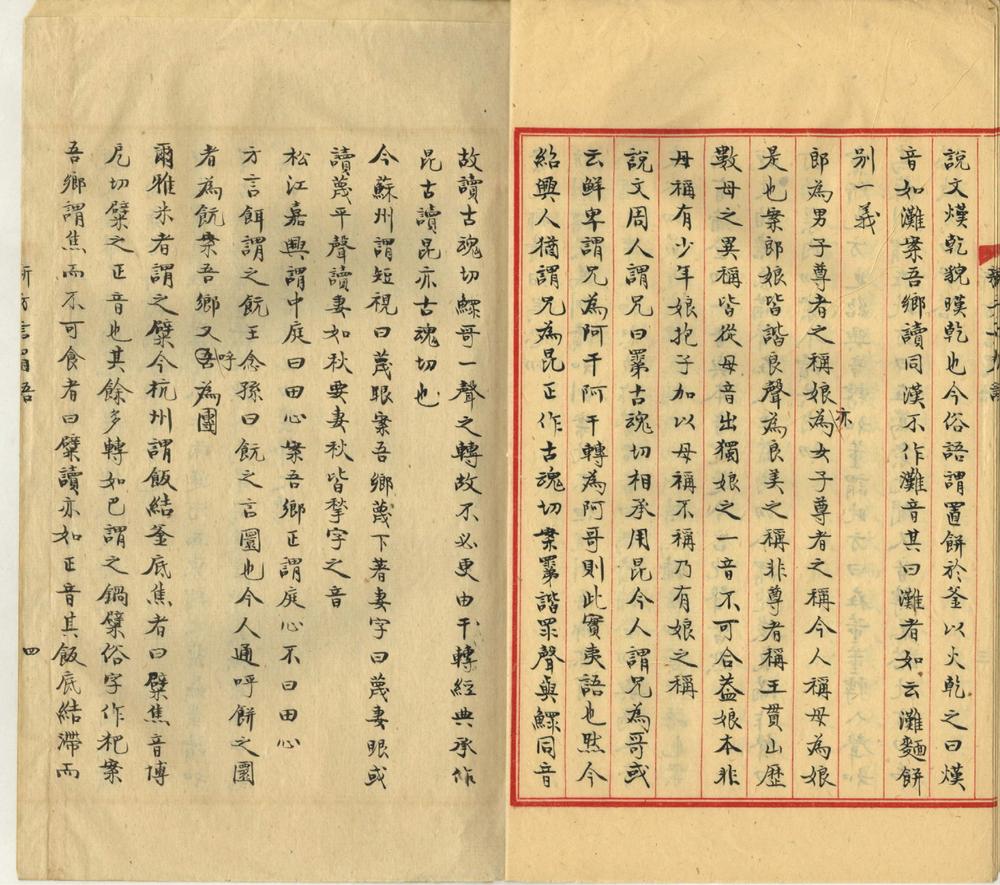 說文熯乾貌暵乾也今俗語謂置餅於釜以火乾之曰熯
音如灘案吾鄉讀同漢不作灘音其曰灘者如云灘麵餅
別一義
郎為男子尊者之稱娘亦為女子尊者之稱今人稱母為娘
是也案郎娘皆諧良聲為良美之稱非尊者稱王貫山歷
數母之異稱皆從母音出獨娘之一音不可合葢娘本非
母稱有少年娘抱子加以母稱不稱乃有娘之稱
說文周人謂兄曰䍛古魂切相承用昆今人謂兄為哥或
云鮮卑謂兄為阿干阿干轉為阿哥則此實夷語也然今
紹興人猶謂兄為昆正作古魂切案䍛諧眔聲與鰥同音
故讀古魂切鰥哥一聲之轉故不必更由干轉經典承作
昆古讀昆亦古魂切也
今蘇州謂短視曰䁾眼案吾鄉䁾下著妻字曰䁾妻眼或
讀䁾平聲讀妻如秋要妻秋皆揫字之音
松江嘉興謂中庭曰田心案吾鄉正謂庭心不曰田心
方言餌謂之飥王念孫曰飥之言團也今人通呼餅之圜
者為飥案吾鄉又呼為團
爾雅米者謂之糪今杭州謂飯結釜底焦者曰糪焦音博
戹切糪之正音也其餘多轉如巴謂之鍋糪俗字作粑案
吾鄉謂焦而不可食者曰糪讀亦如正音其飯底結滯而
新方言眉語
四